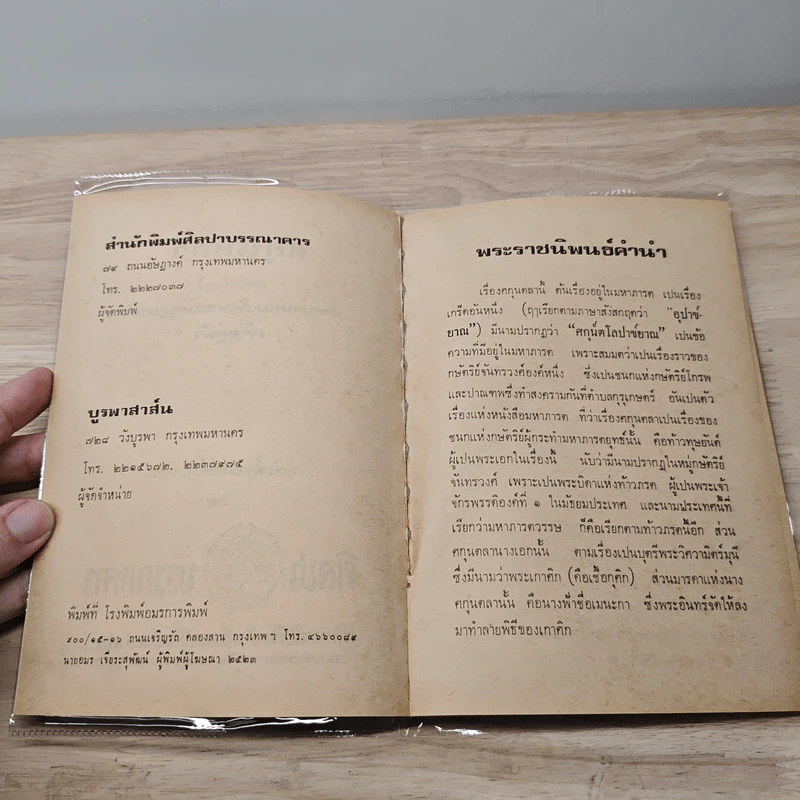 สำนักพิมพ์ศิลปาบรรณาคาร
๗๙ ถนนอัษฎางค์ กรุงเทพมหานคร
โทร. ๒๒๒๗๐๓๗
ผู้จัดพิมพ์
บูรพาสาส์น
๗๒๘ วังบูรพา กรุงเทพมหานคร
โทร. ๒๒๑๕๖๗๒, ๒๒๓๗๙๗๕
ผู้จัดจำหน่าย
พิมพ์ที่ โรงพิมพ์อมรการพิมพ์
๔๐๐/๑๕-๑๖ ถนนเจริญรัถ คลองสาน กรุงเทพ ฯ โทร. ๔๖๖๐๐๘๙
นายอมร เจียระสุพัฒน์ ผู้พิมพ์ผู้โฆษณา ๒๕๒๓
พระราชนิพนธ์คำนำ
เรื่องศกุนตลานี้ ต้นเรื่องอยู่ในมหาภารต เปนเรื่อง
เกร็ดอันหนึ่ง (ฤๅเรียกตามภาษาสังสกฤตว่า "อุปาข์-
ยาณ") มีนามปรากฏว่า "ศกุน์ตโลปาข์ยาณ" เปนข้อ
ความที่มีอยู่ในมหาภารต เพราะสมมตว่าเปนเรื่องราวของ
กษัตริย์จันทรวงศ์องค์หนึ่ง ซึ่งเปนชนกแห่งกษัตริย์โกรพ
และปาณฑพซึ่งทำสงครามกันที่ตำบลกุรุเกษตร์ อันเปนตัว
เรื่องแห่งหนังสือมหาภารต ที่ว่าเรื่องศกุนตลาเปนเรื่องของ
ชนกแห่งกษัตริย์ผู้กระทำมหาภารตยุทธ์นั้น คือท้าวทุษยันต์
ผู้เปนพระเอกในเรื่องนี้ นับว่ามีนามปรากฏในหมู่กษัตริย์
จันทรวงศ์ เพราะเปนพระบิดาแห่งท้าวภรต ผู้เปนพระเจ้า
จักรพรรดิองค์ที่ ๑ ในมัธยมประเทศ และนามประเทศนี้ที่
เรียกว่ามหาภารตวรรษ ก็คือเรียกตามท้าวภรตนี้อีก ส่วน
ศกุนตลานางเอกนั้น ตามเรื่องเปนบุตรีพระวิศวามิตร์มุนี
ซึ่งมีนามว่าพระเกาศิก (คือเชื้อกุศิก) ส่วนมารดาแห่งนาง
ศกุนตลานั้น คือนางฟ้าชื่อเมนะกา ซึ่งพระอินทร์จัดให้ลง
มาทำลายพิธีของเกาศิก